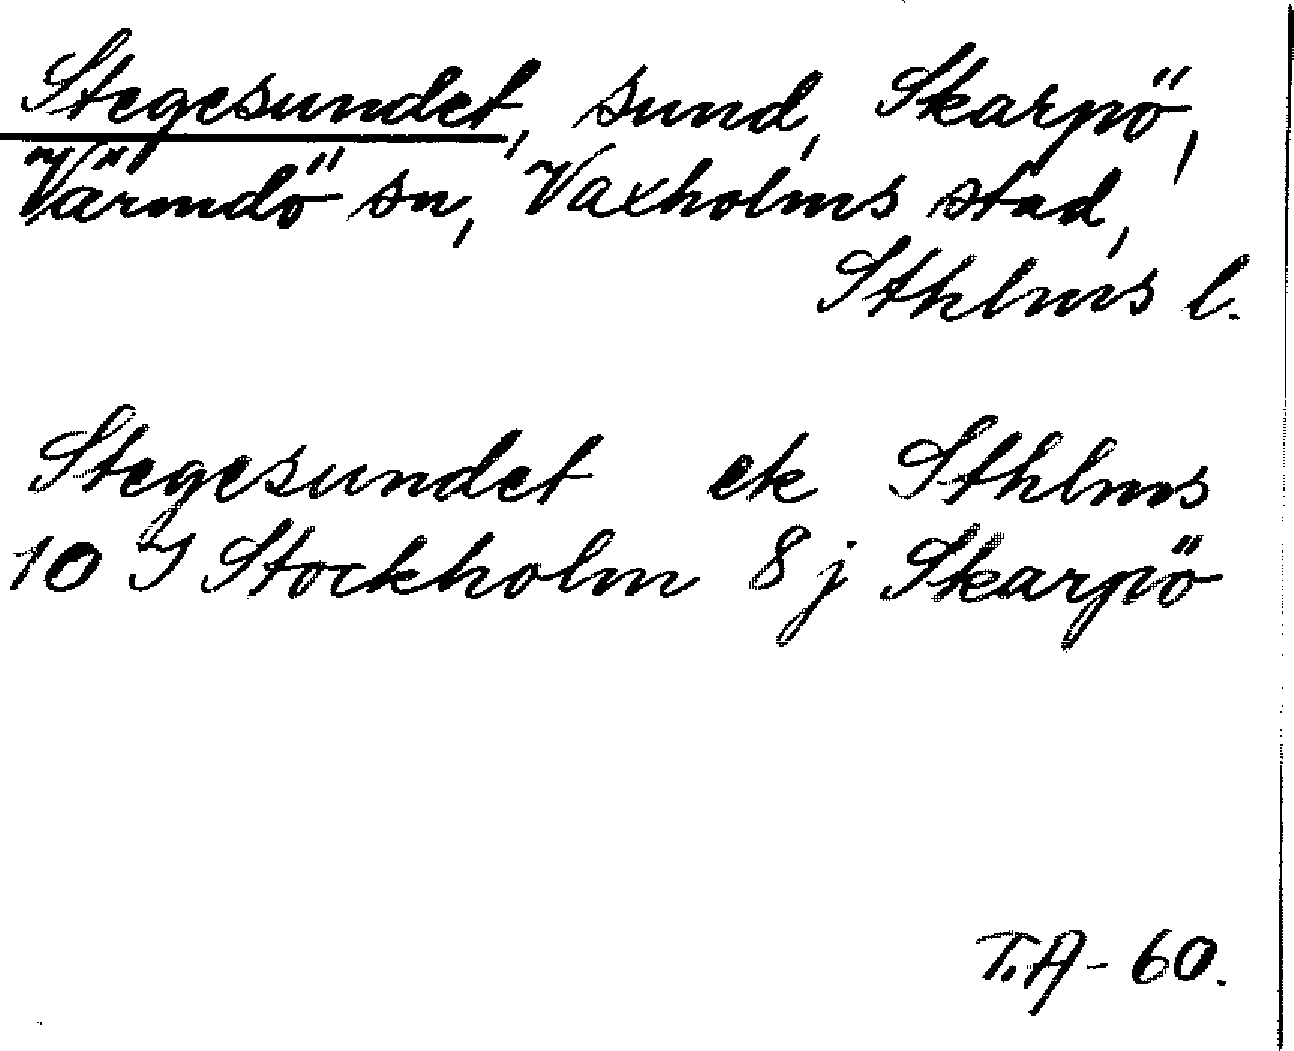 Stegesundet, sund, Skarpö,
Värmdö sn, Vaxholms stad,
Sthlms l.
Stegesundet ek Sthlms
10 I Stockholm 8 j Skarpö
T.A-60.